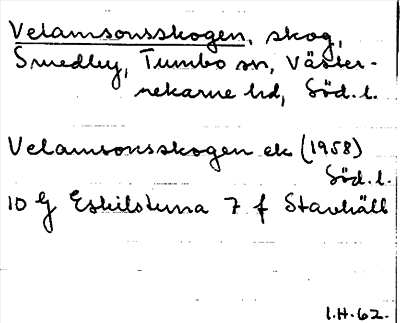 Velamsonsskogen, skog,
Smedby, Tumbo sn, Väster-
rekarne hd, Söd.l.
Velamsonsskogen ek (1958)
Söd.l.
10 G Eskilstuna 7 f Stavhäll
I.H.62.